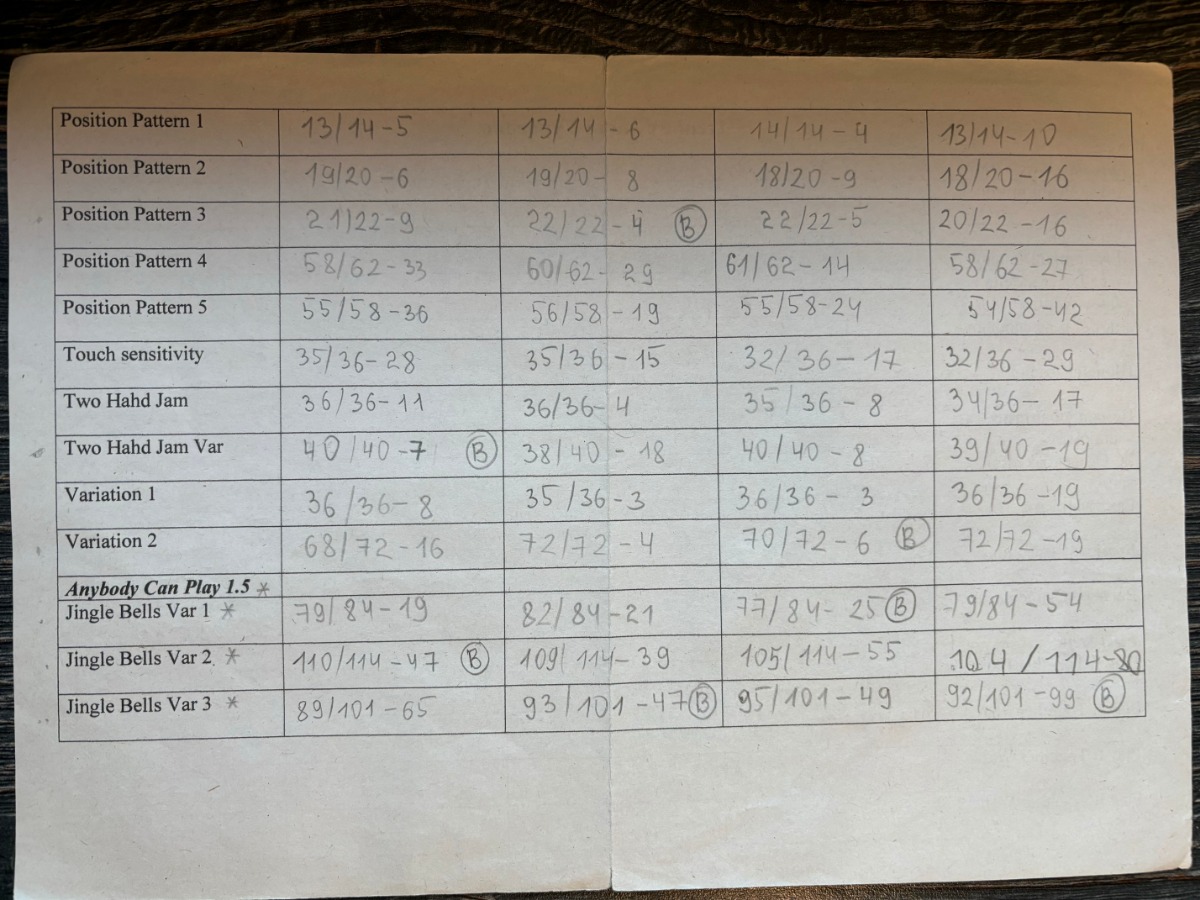 Position Pattern 1 13/14-5 13/14-6 14/14-4 13/14-10
Position Pattern 2 19/20-6 19/20-8 18/20-9 18/20-16
Position Pattern 3 21/22-9 22/22-4 B 22/22-5 20/22-16
Position Pattern 4 58/62-33 60/62-29 61/62-14 58/62-27
Position Pattern 5 55/58-36 56/58-19 55/58-24 54/58-42
Touch sensitivity 35/36-28 35/36-15 32/36-17 32/36-29
Two Hahd Jam 36/36-11 36/36-4 35/36-8 34/36-17
Two Hahd Jam Var 40/40-7 B 38/40-18 40/40-8 39/40-19
Variation 1 36/36-8 35/36-3 36/36-3 36/36-19
Variation 2 68/72-16 72/72-4 70/72-6 B 72/72-19
Anybody Can Play 1.5 *
Jingle Bells Var 1 * 79/84-19 82/84-21 77/84-25 B 79/84-54
Jingle Bells Var 2 * 110/114-47 B 109/114-39 105/114-55 104/114-80
Jingle Bells Var 3 * 89/101-65 93/101-47 B 95/101-49 92/101-99 B